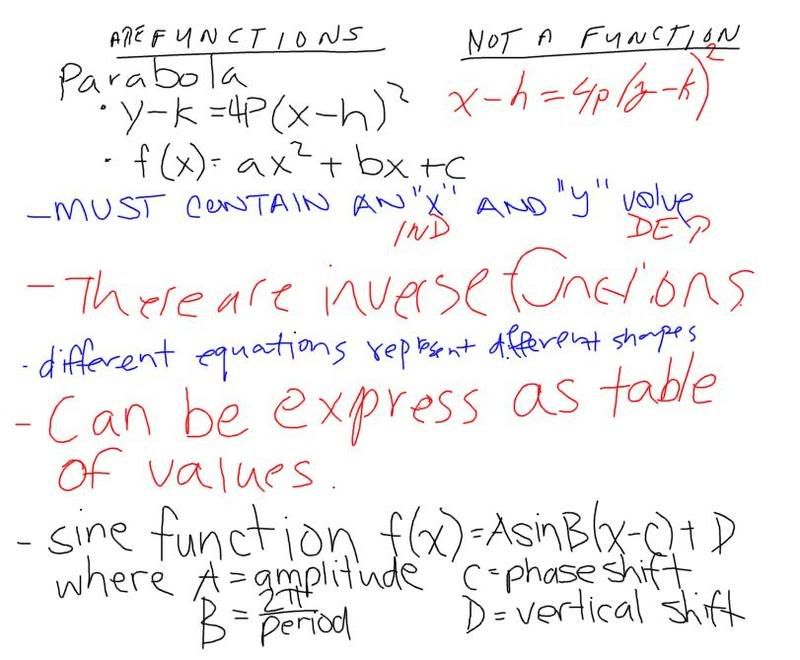 ARE FUNCTIONS
NOT A FUNCTION
Parabola
• y-k=4P(x-h)²
x-h=4p(y-k)²
• f(x)= ax²+bx+c
-MUST CONTAIN AN "X" AND "y" value
IND DEP
- There are inverse functions
- different equations represent different shapes
- Can be express as table
of values.
- sine function f(x)=AsinB(x-c)+D
where A=amplitude C=phase shift
B=2π/period D=vertical shift